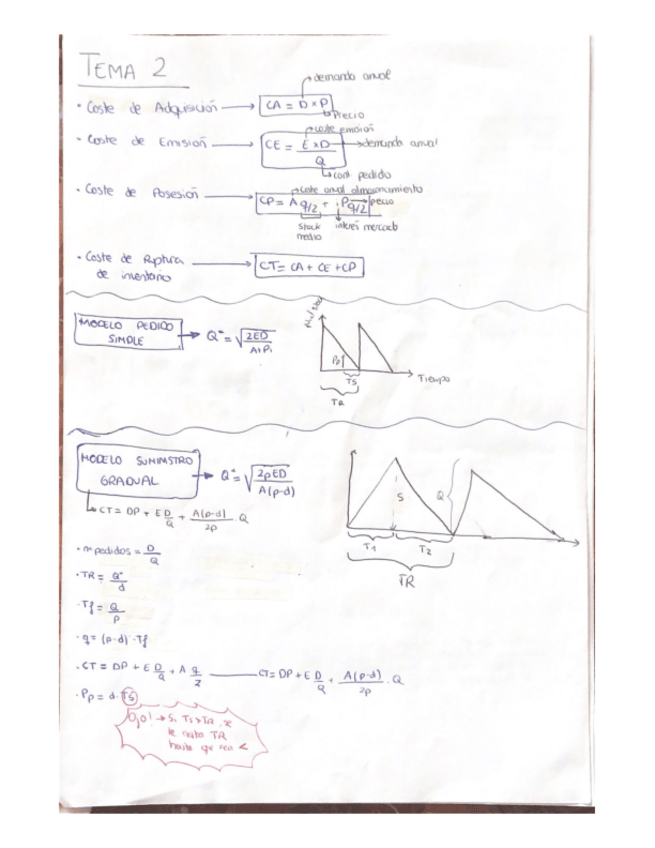 TEMA 2
demanda anual
· Coste de Adquisición → CA = D × P
Precio
coste emisión
· Coste de Emisión → CE = E × D / Q → demanda anual
cant pedido
· Coste de Posesión → coste anual almacenamiento
CP = A q/2 + i P q/2 → precio
stock medio
interés mercado
· Coste de Ruptura de inventario → CT = CA + CE + CP
MODELO PEDIDO SIMPLE → Q* = √(2ED / A+Pi)
Pp
TS
TR
Tiempo
MODELO SUMINISTRO GRADUAL → Q* = √(2pED / A(p-d))
CT = DP + E D/Q + A(p-d)/2p · Q
S
Q
T1
T2
TR
· nº pedidos = D/Q
· TR = Q*/d
· Tf = Q/p
· q = (p-d) · Tf
· CT = DP + E D/Q + A q/2 —— CT = DP + E D/Q + A(p-d)/2p · Q
· Pp = d · TS
¡Ojo! → Si TS > TR,
le resto TR
hasta que sea <